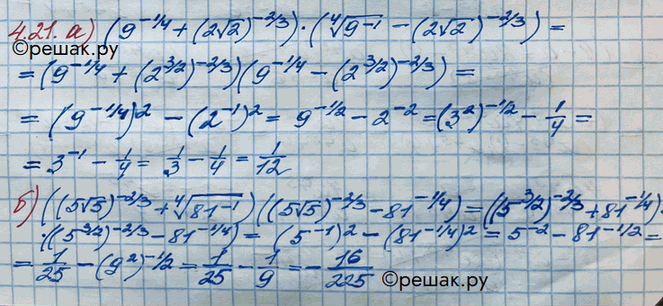 4.21. а) (9^{-1/4} + (2√2)^{-2/3}) · (⁴√9^{-1} - (2√2)^{-2/3}) =
©решак.ру
= (9^{-1/4} + (2^{3/2})^{-2/3})(9^{-1/4} - (2^{3/2})^{-2/3}) =
= (9^{-1/4})² - (2^{-1})² = 9^{-1/2} - 2^{-2} = (3²)^{-1/2} - 1/4 =
= 3^{-1} - 1/4 = 1/3 - 1/4 = 1/12
б) ((5√5)^{-2/3} + ⁴√81^{-1})((5√5)^{-2/3} - 81^{-1/4}) = ((5^{3/2})^{-2/3} + 81^{-1/4}) ·
· ((5^{3/2})^{-2/3} - 81^{-1/4}) = (5^{-1})² - (81^{-1/4})² = 5^{-2} - 81^{-1/2} =
= 1/25 - (9²)^{-1/2} = 1/25 - 1/9 = - 16/225
©решак.ру